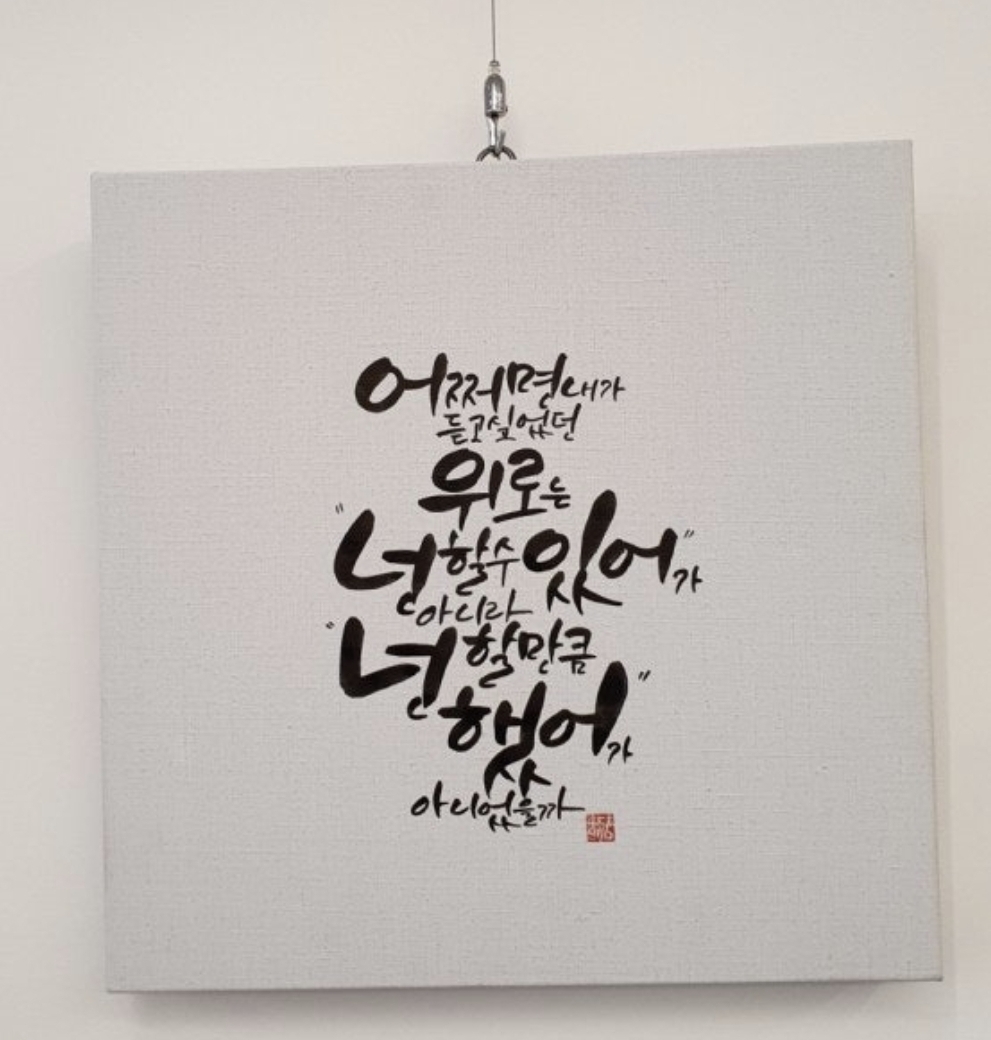 어쩌면 내가
듣고 싶었던
위로는
"넌 할 수 있어"가
아니라
"넌 할만큼
했어"가
아니었을까